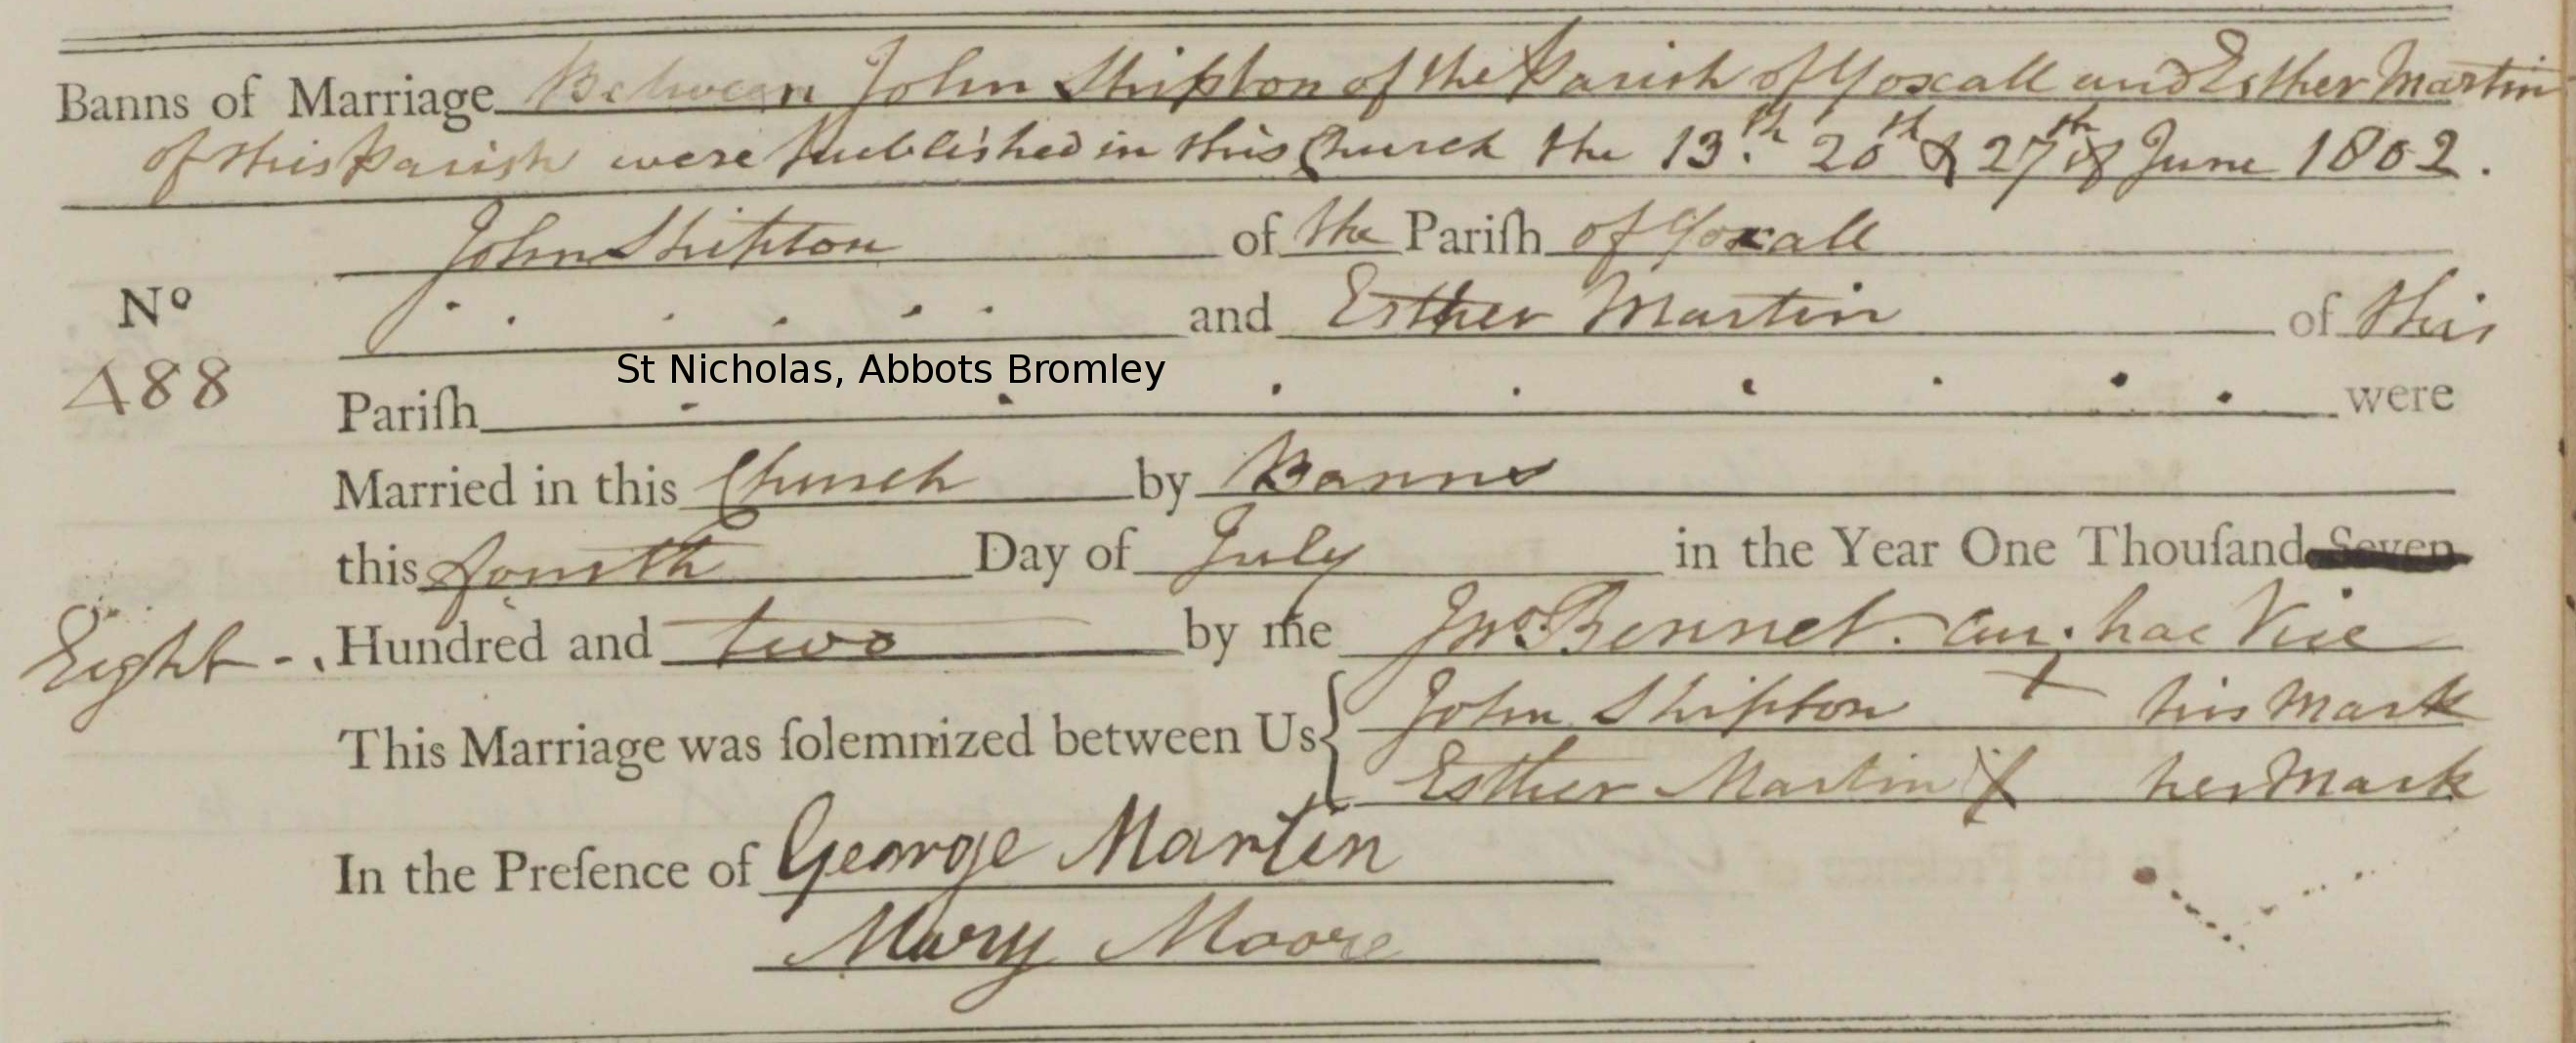 Banns of Marriage Between John Shipton of the Parish of Yoxall and Esther Martin
of this Parish were published in this Church the 13.th 20th & 27th of June 1802.
John Shipton of the Pariſh of Yoxall
No
. . . . . . and Esther Martin of this
488
St Nicholas, Abbots Bromley
Pariſh were
Married in this Church by Banns
this fourth Day of July in the Year One Thouſand Seven
Eight -. Hundred and two by me Jno. Bennet. Cur: hac Vice
John Shipton + his Mark
This Marriage was ſolemnized between Us
Esther Martin X her Mark
In the Preſence of George Martin
Mary Moore